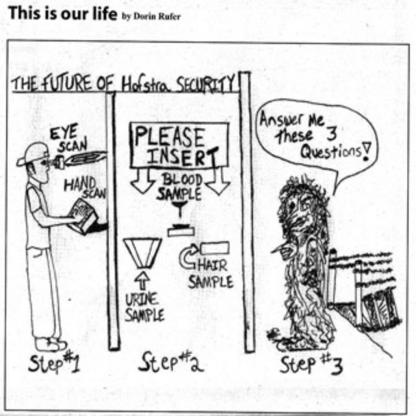 This is our life by Dorin Rufer
THE FUTURE OF Hofstra SECURITY
EYE
SCAN
HAND
SCAN
Step #1
PLEASE
INSERT
BLOOD
SAMPLE
HAIR
SAMPLE
URINE
SAMPLE
Step #2
Answer Me
these 3
Questions!
Step #3